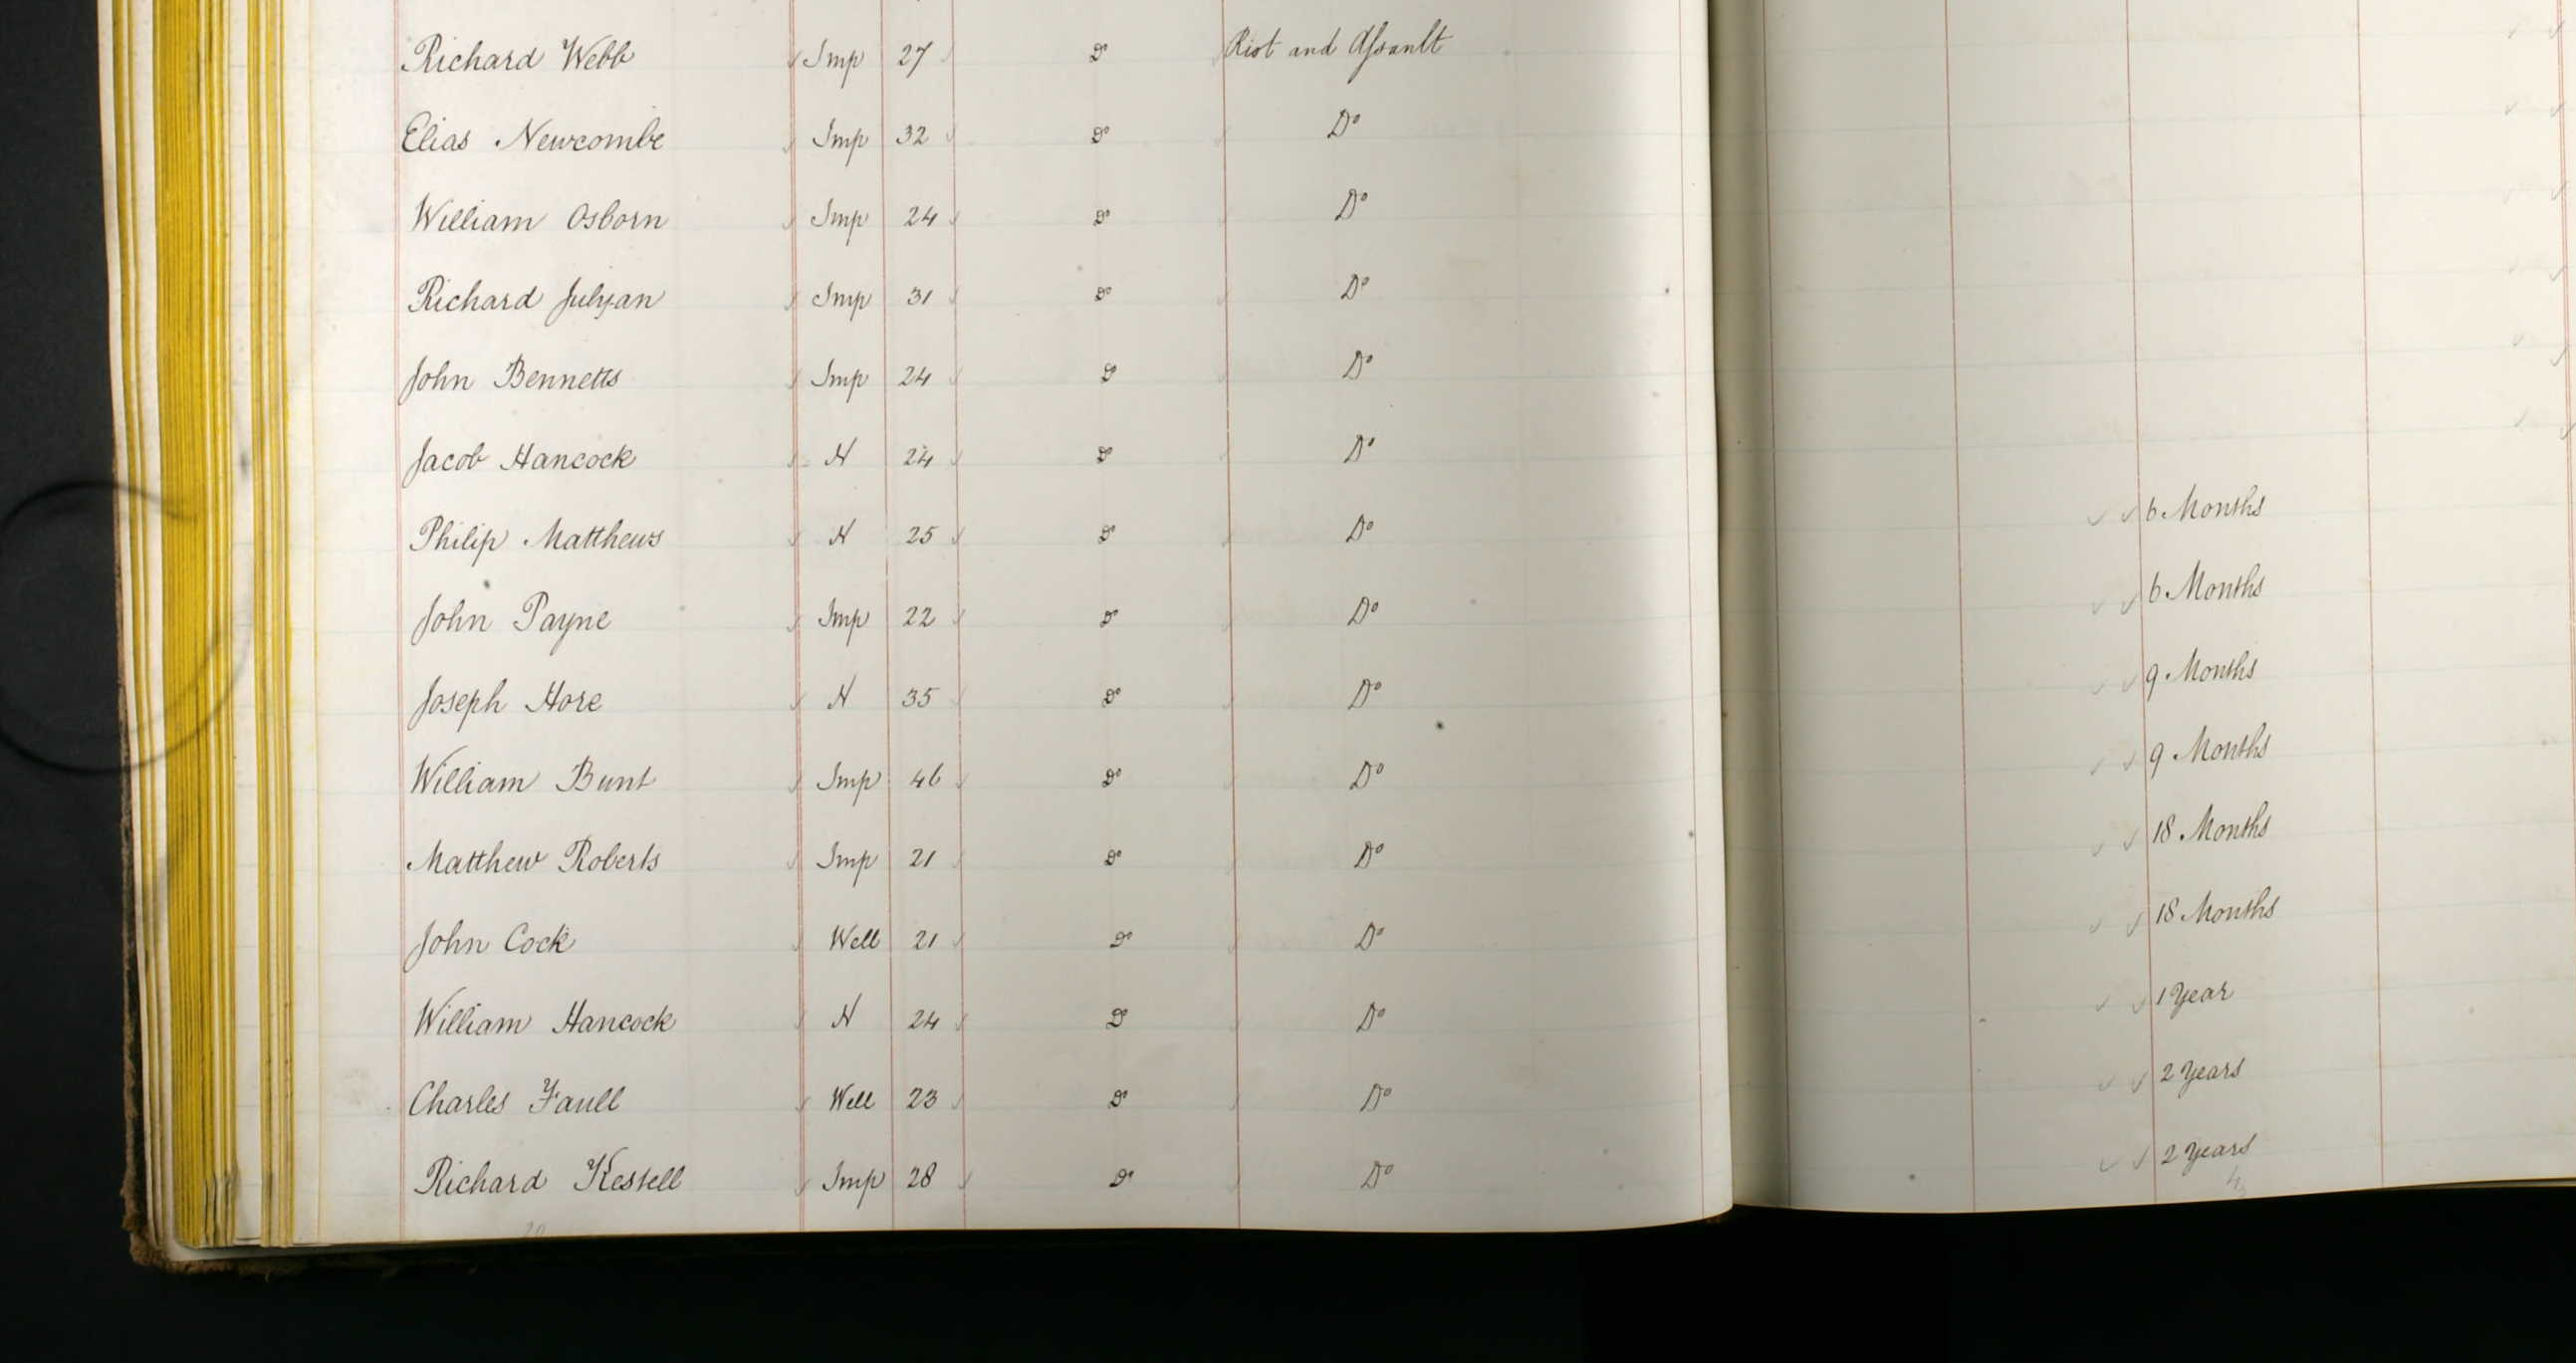 Richard Webb Imp 27 Do Riot and Aſsault
Elias Newcombe Imp 32 Do Do
William Osborn Imp 24 Do Do
Richard Julyan Imp 31 Do Do
John Bennetts Imp 24 Do Do
Jacob Hancock N 24 Do Do
Philip Matthews N 25 Do Do 6 Months
John Payne Imp 22 Do Do 6 Months
Joseph Hore N 35 Do Do 9 Months
William Bunt Imp 46 Do Do 9 Months
Matthew Roberts Imp 21 Do Do 18 Months
John Cock Well 21 Do Do 18 Months
William Hancock N 24 Do Do 1 Year
Charles Faull Well 23 Do Do 2 Years
Richard Kestell Imp 28 Do Do 2 Years